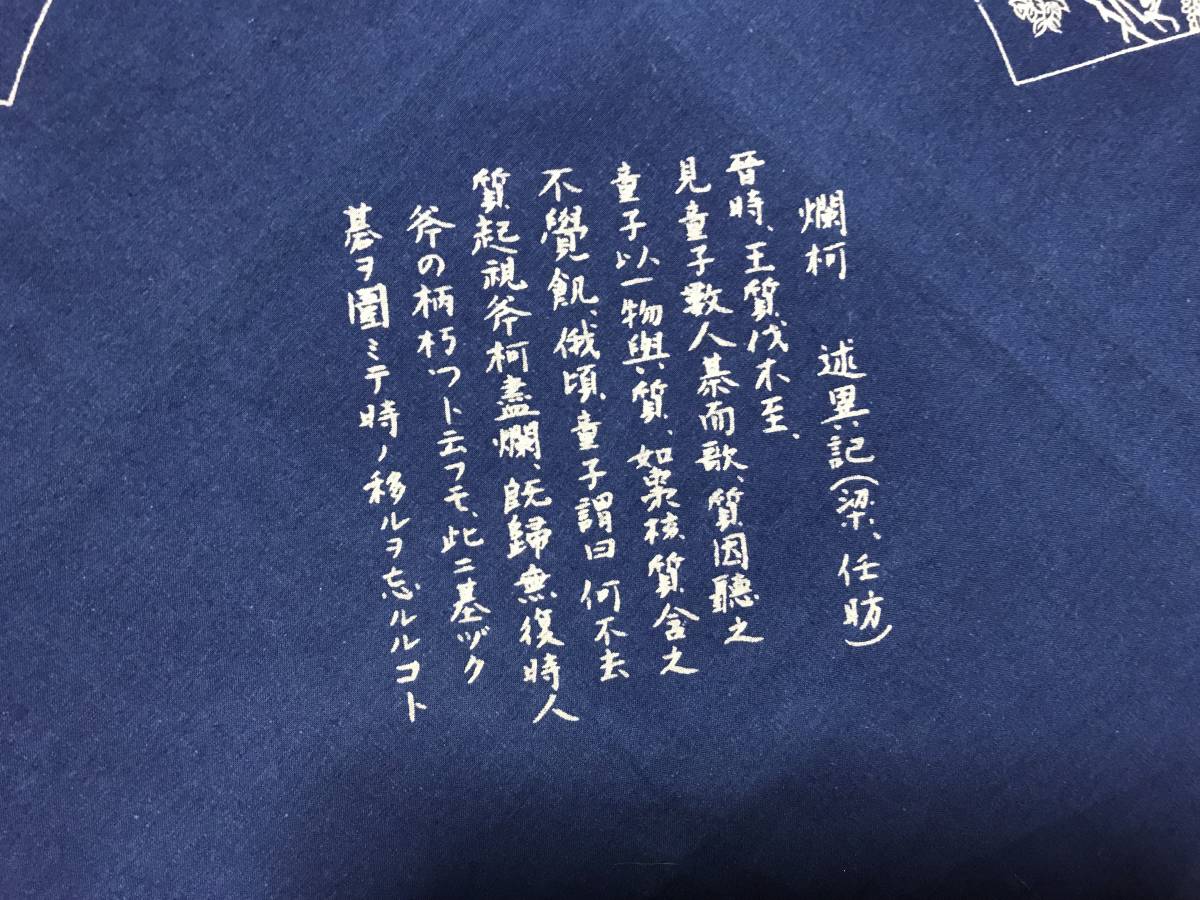 爛柯　述異記(梁、任昉)
晉時、王質伐木至、
見童子數人棊而歌、質因聽之
童子以一物與質、如棗核質含之
不覺飢、俄頃童子謂曰何不去
質起視斧柯盡爛、既歸無復時人
斧の柄朽ツト云フモ、此ニ基ヅク
碁ヲ圍ミテ時ノ移ルヲ忘ルルコト